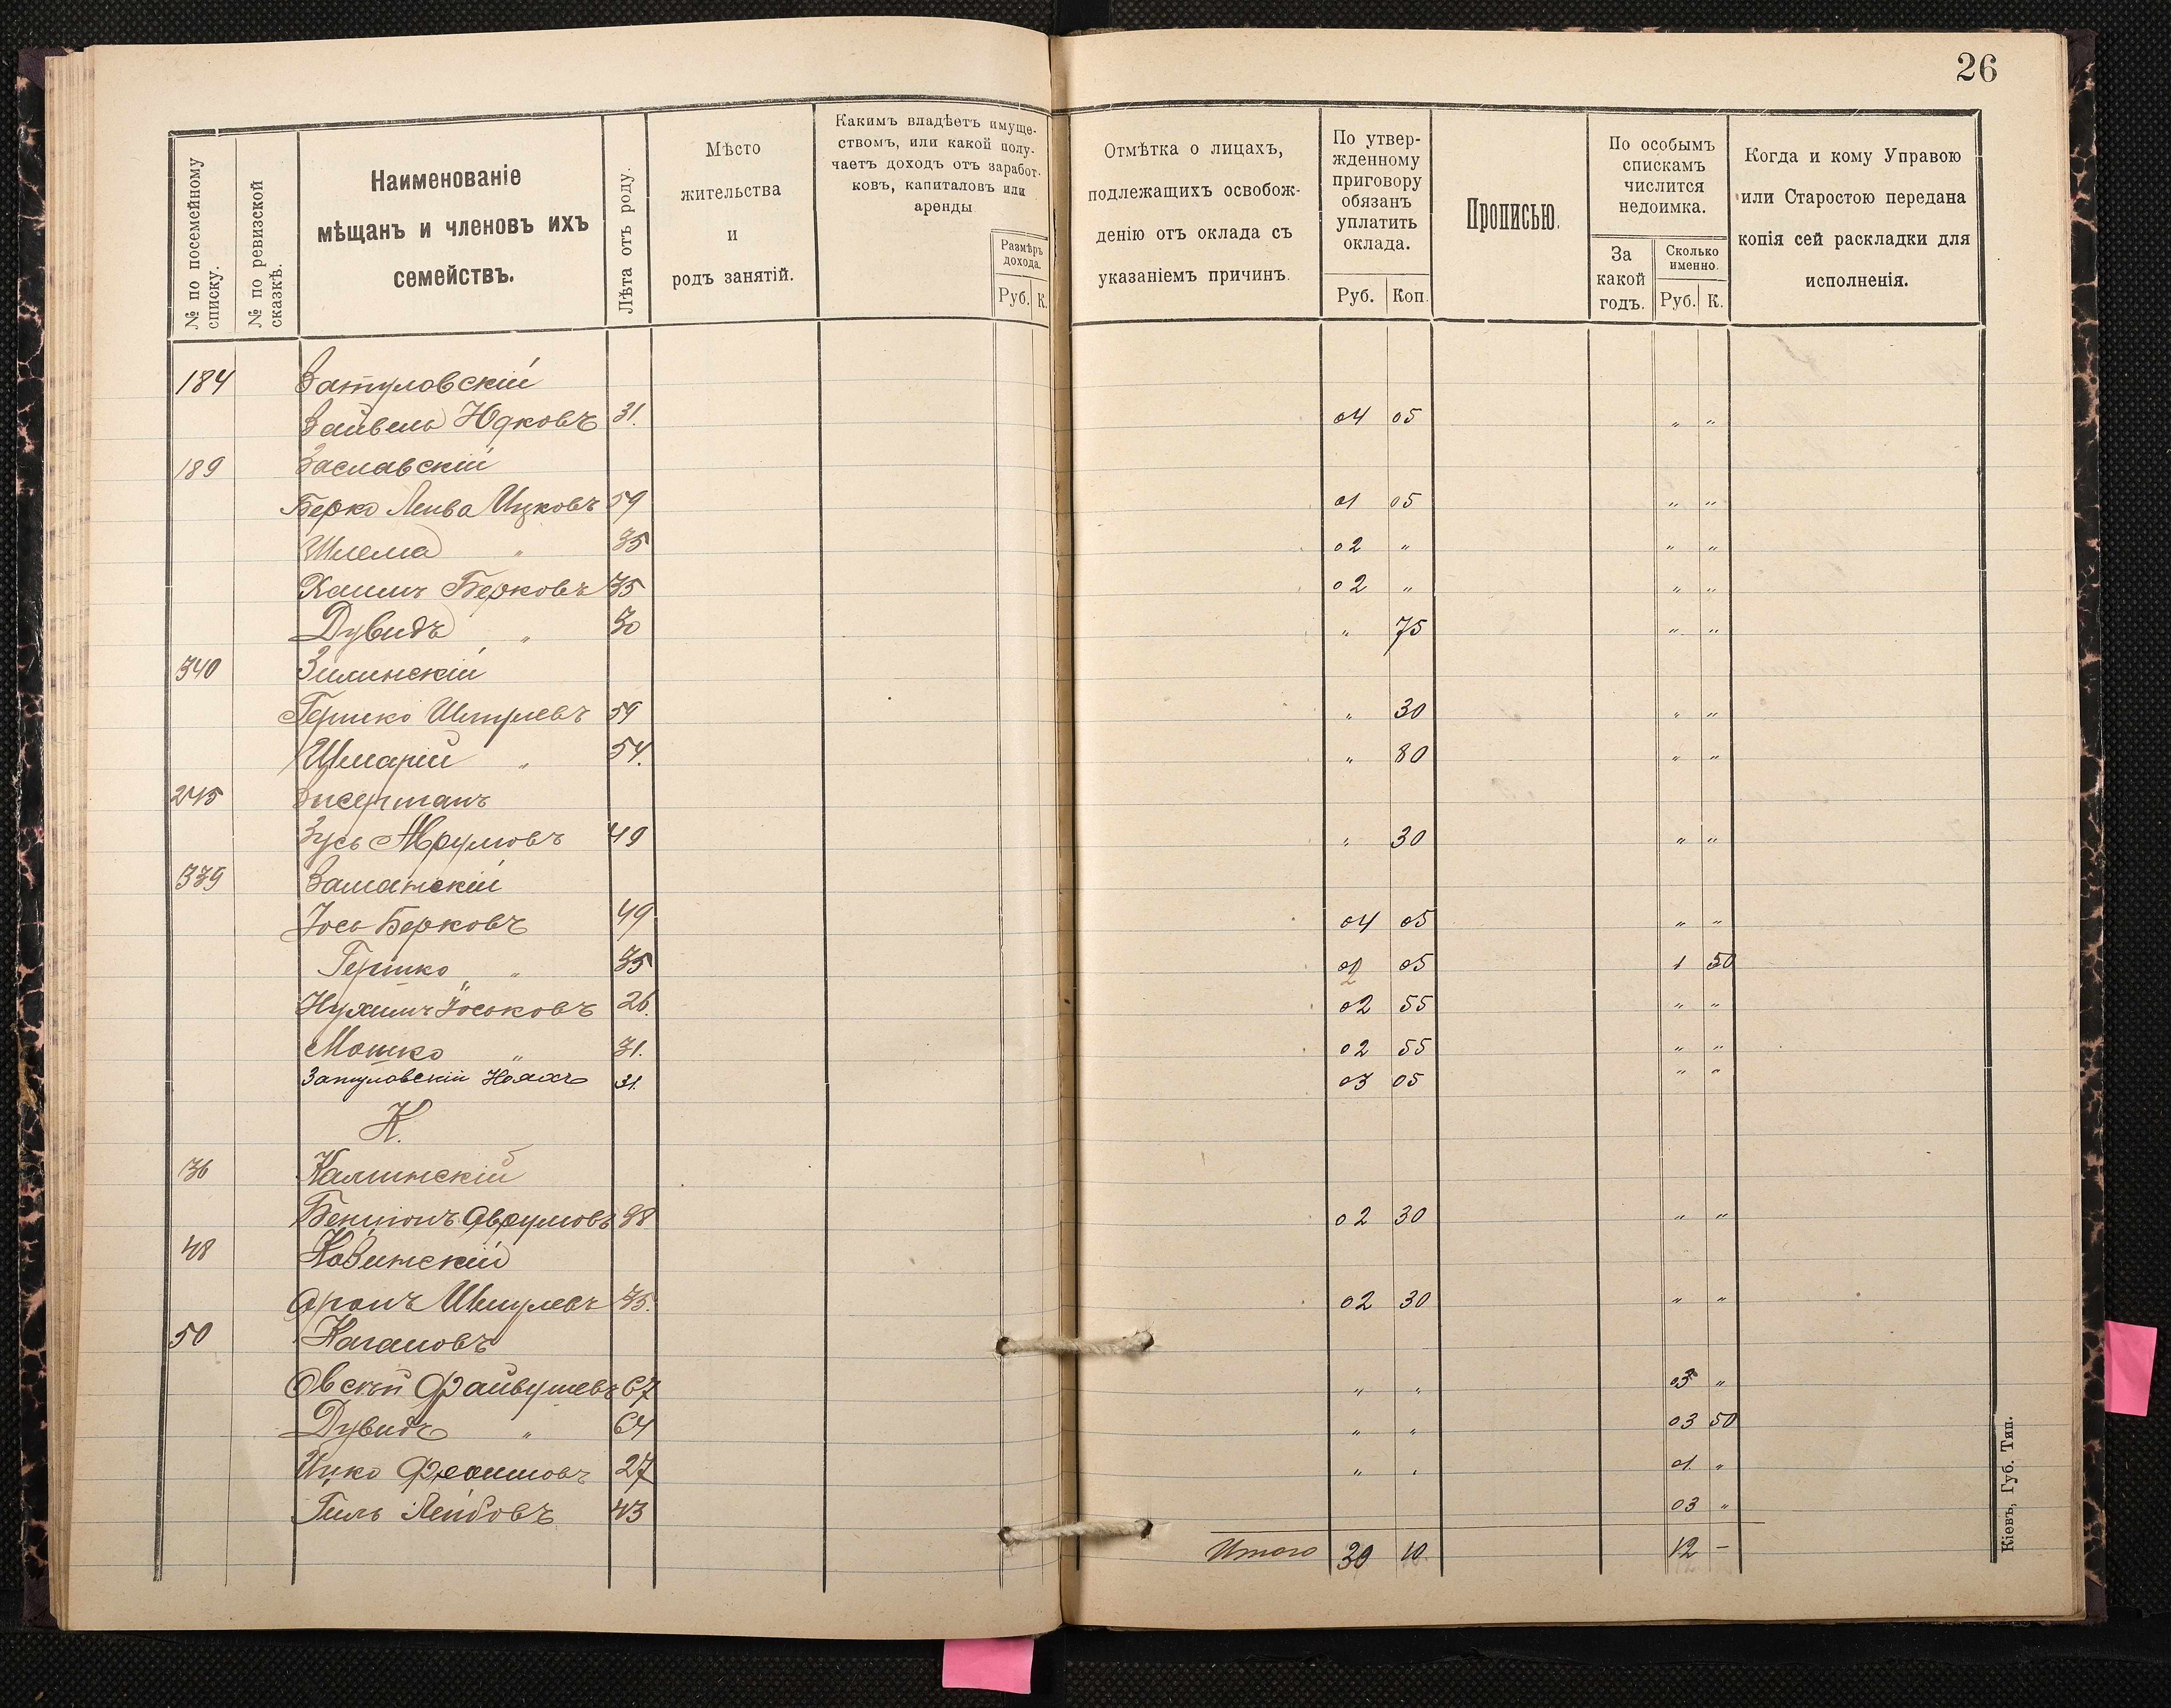 26
№ по посемейному списку.
№ по ревизской сказкѣ.
Наименованіе мѣщанъ и членовъ ихъ семействъ.
Лѣта отъ роду.
Мѣсто жительства и родъ занятій.
Какимъ владѣетъ имуще-
ствомъ, или какой полу-
чаетъ доходъ отъ заработ-
ковъ, капиталовъ или
аренды
Размѣръ дохода.
Руб. К.
Отмѣтка о лицахъ,
подлежащихъ освобож-
денію отъ оклада съ
указаніемъ причинъ.
По утвер-
жденному
приговору
обязанъ
уплатить
оклада.
Руб. Коп.
Прописью.
По особымъ
спискамъ
числится
недоимка.
За какой годъ.
Сколько именно.
Руб. К.
Когда и кому Управою
или Старостою передана
копія сей раскладки для
исполненія.
184 Затуловскій
Зайвель Юдковъ 31. 04 05 " "
189 Заславскій
Берко Лейва Ицковъ 59 01 05 " "
Шлема " 35 02 " " "
Хаимъ Берковъ 35 02 " " "
Дувидъ " 30 " 75 " "
340 Зилинскій
Гершко Шмулевъ 59 " 30 " "
Шмарій " 54. " 80 " "
245
Зусь Аврумовъ 49 " 30 " "
339 Заманскій
Іось Берковъ 49 04 05 " "
Гершко " 35 05 1 50
2
Нухимъ Іоськовъ 26. 02 55 " "
Мошко " 31. 02 55 " "
Затуловскій 31. 03 05 " "
К.
36 Калинскій
Бенціонъ Аврумовъ 38 02 30 " "
48
Аронъ Шмулевъ 35. 02 30 " "
50 Кагановъ
Овсѣй Файвушевъ 67 " " 03 "
Дувидъ " 64 " " 03 50
Ицко 27 " " 01 "
Гиль Лейбовъ 43 03 "
Итого 30 10 12 –
Кіевъ, Губ. Тип.